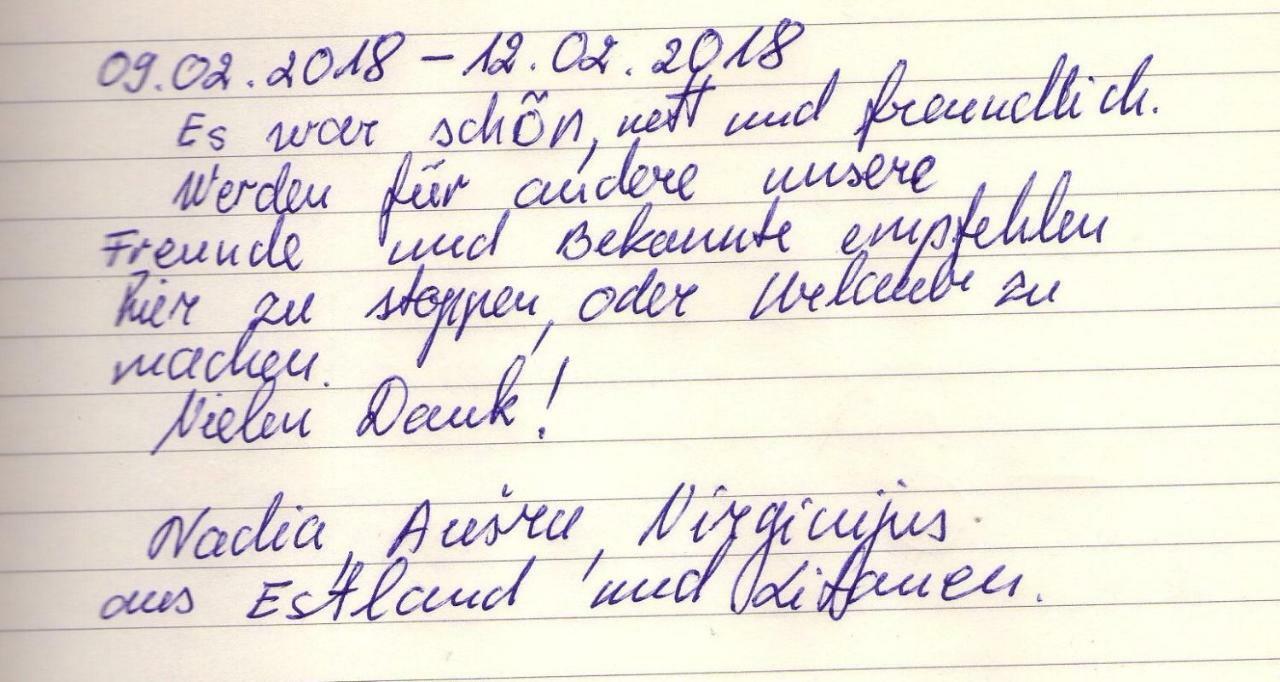 09.02.2018 – 12.02.2018
Es war schön, nett und freundlich.
Werden für andere unsere
Freunde und Bekannte empfehlen
hier zu stoppen, oder Urlaub zu
machen.
Vielen Dank!
Nadia, Aušra, Virginijus
aus Estland und Litauen.